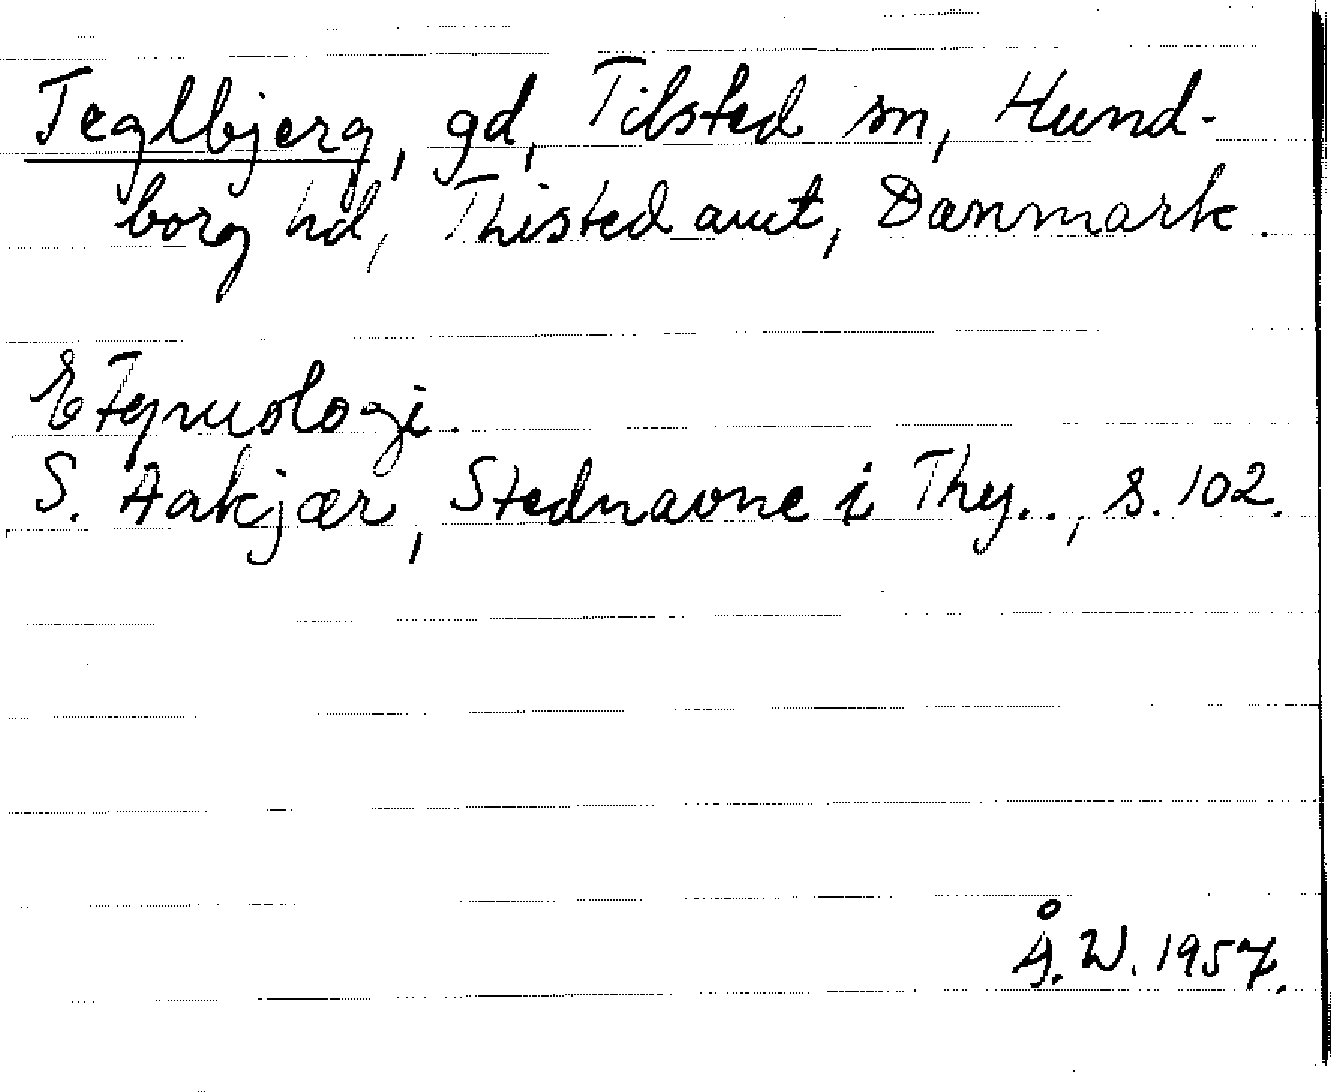 Teglbjerg, gd, Tilsted sn, Hund-
borg hd, Thisted amt, Danmark.
Etymologi.
S. Aakjær, Stednavne i Thy.., s. 102.
Å. W. 1957.